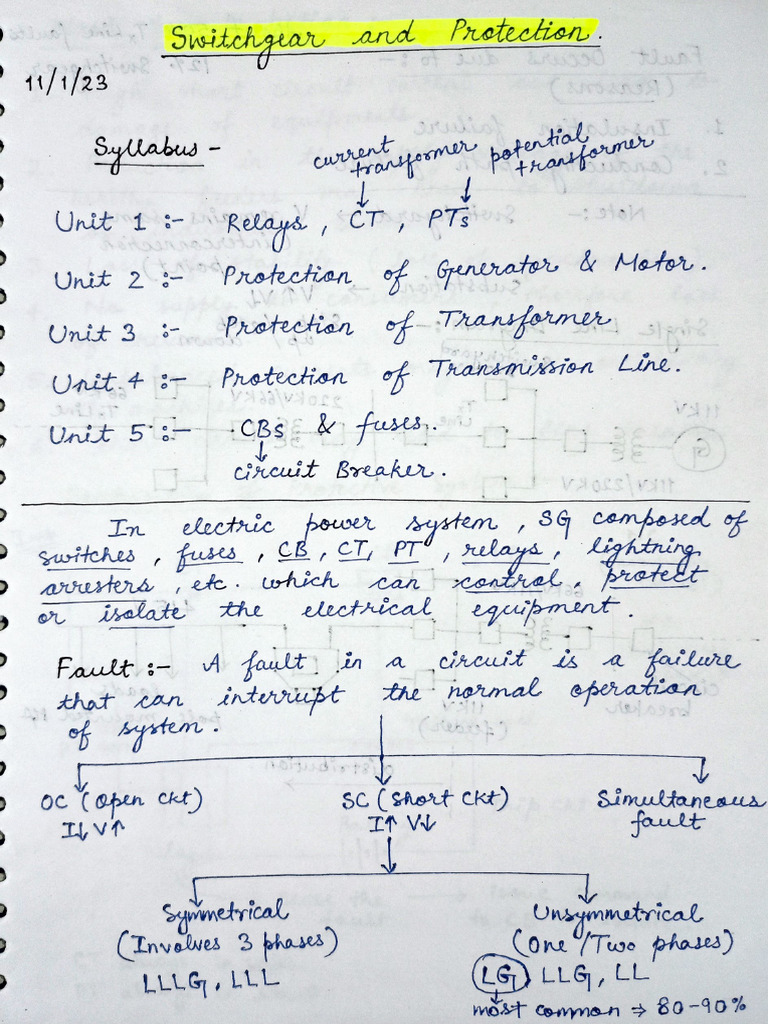 Switchgear and Protection.
11/1/23
Syllabus -
current transformer
potential transformer
Unit 1 :- Relays, CT, PTs
Unit 2 :- Protection of Generator & Motor.
Unit 3 :- Protection of Transformer
Unit 4 :- Protection of Transmission Line.
Unit 5 :- CBs & fuses.
circuit Breaker.
In electric power system, SG composed of
switches, fuses, CB, CT, PT, relays, lightning
arresters, etc. which can control, protect
or isolate the electrical equipment.
Fault :- A fault in a circuit is a failure
that can interrupt the normal operation
of system.
OC (Open Ckt)
I↓ V↑
SC (Short Ckt)
I↑ V↓
Simultaneous
fault
Symmetrical
(Involves 3 phases)
LLLG, LLL
Unsymmetrical
(One/Two phases)
LG, LLG, LL
most common ⇒ 80-90%